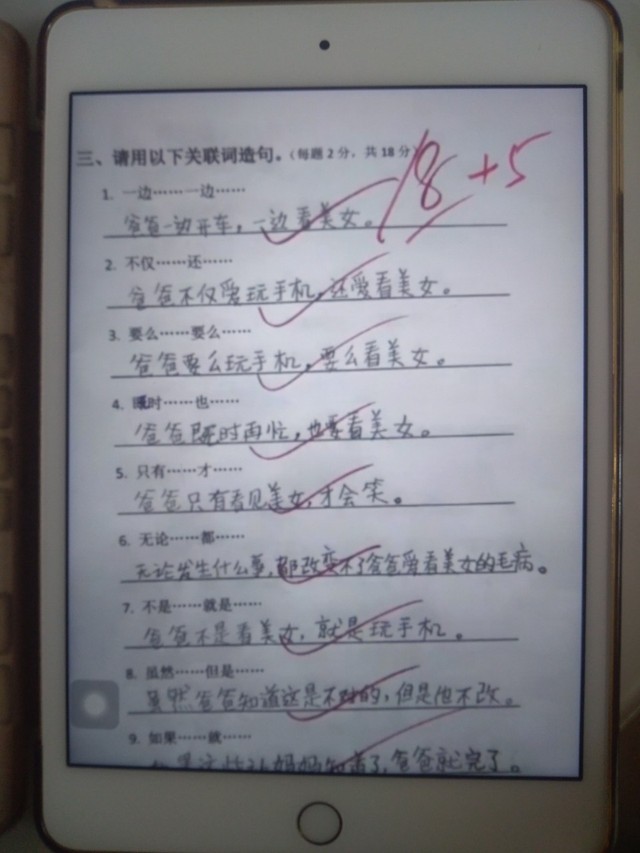 三、请用以下关联词造句。（每题2分，共18分）
18+5
1. 一边……一边……
爸爸一边开车，一边看美女。
2. 不仅……还……
爸爸不仅爱玩手机，还爱看美女。
3. 要么……要么……
爸爸要么玩手机，要么看美女。
4. 既时……也……
爸爸既时再忙，也要看美女。
5. 只有……才……
爸爸只有看见美女，才会笑。
6. 无论……都……
无论发生什么事，都改变不了爸爸爱看美女的毛病。
7. 不是……就是……
爸爸不是看美女，就是玩手机。
8. 虽然……但是……
虽然爸爸知道这是不对的，但是他不改。
9. 如果……就……
妈妈知道了，爸爸就完了。